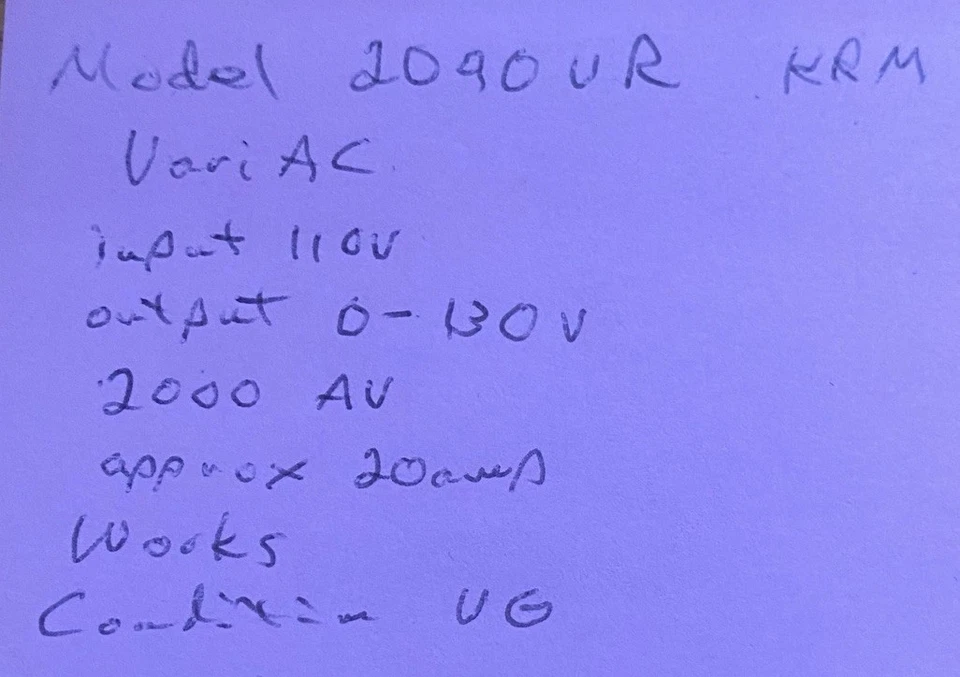 Model 2090UR KRM
VariAC
input 110V
output 0-130V
2000 AV
approx 20amp
Works
Condition VG